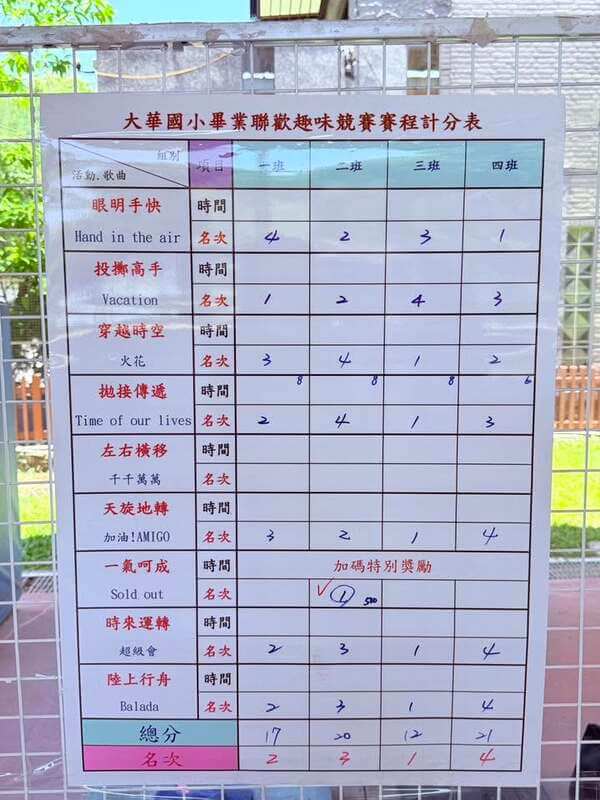 大華國小畢業聯歡趣味競賽賽程計分表
組別 項目 一班 二班 三班 四班
活動.歌曲
眼明手快 時間
Hand in the air 名次 4 2 3 1
投擲高手 時間
Vacation 名次 1 2 4 3
穿越時空 時間
火花 名次 3 4 1 2
拋接傳遞 時間 8 8 8 6
Time of our lives 名次 2 4 1 3
左右橫移 時間
千千萬萬 名次
天旋地轉 時間
加油!AMIGO 名次 3 2 1 4
一氣呵成 時間 加碼特別獎勵
Sold out 名次 ✓ 1 500
時來運轉 時間
超級會 名次 2 3 1 4
陸上行舟 時間
Balada 名次 2 3 1 4
總分 17 20 12 21
名次 2 3 1 4